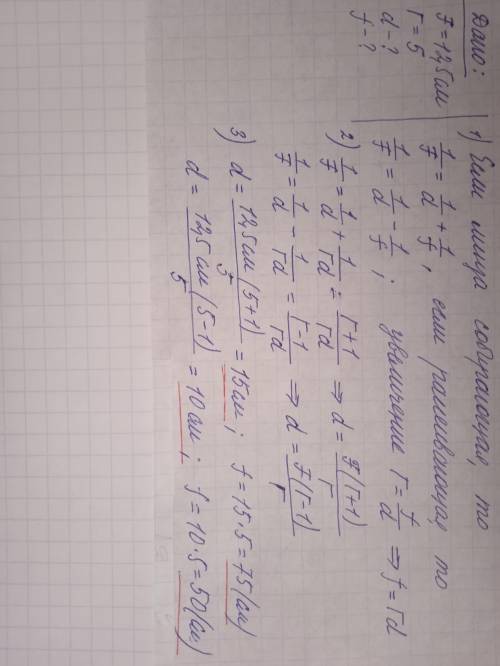 Дано:
F=12,5 см
Г=5
d-?
f-?
1) Если линза собирающая, то
1/F = 1/d + 1/f, если рассеивающая, то
1/F = 1/d - 1/f; увеличение Г = f/d ⇒ f=Гd
2) 1/F = 1/d + 1/Гd = Г+1/Гd ⇒ d = F(Г+1)/Г
1/F = 1/d - 1/Гd = Г-1/Гd ⇒ d = F(Г-1)/Г
3) d = 12,5 см (5+1)/5 = 15 см; f = 15·5 = 75 (см)
d = 12,5 см (5-1)/5 = 10 см; f = 10·5 = 50 (см)